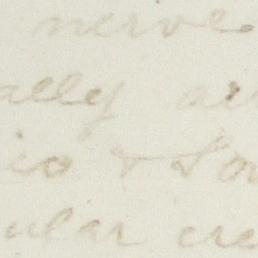 nerve
ally
io &
ular cre